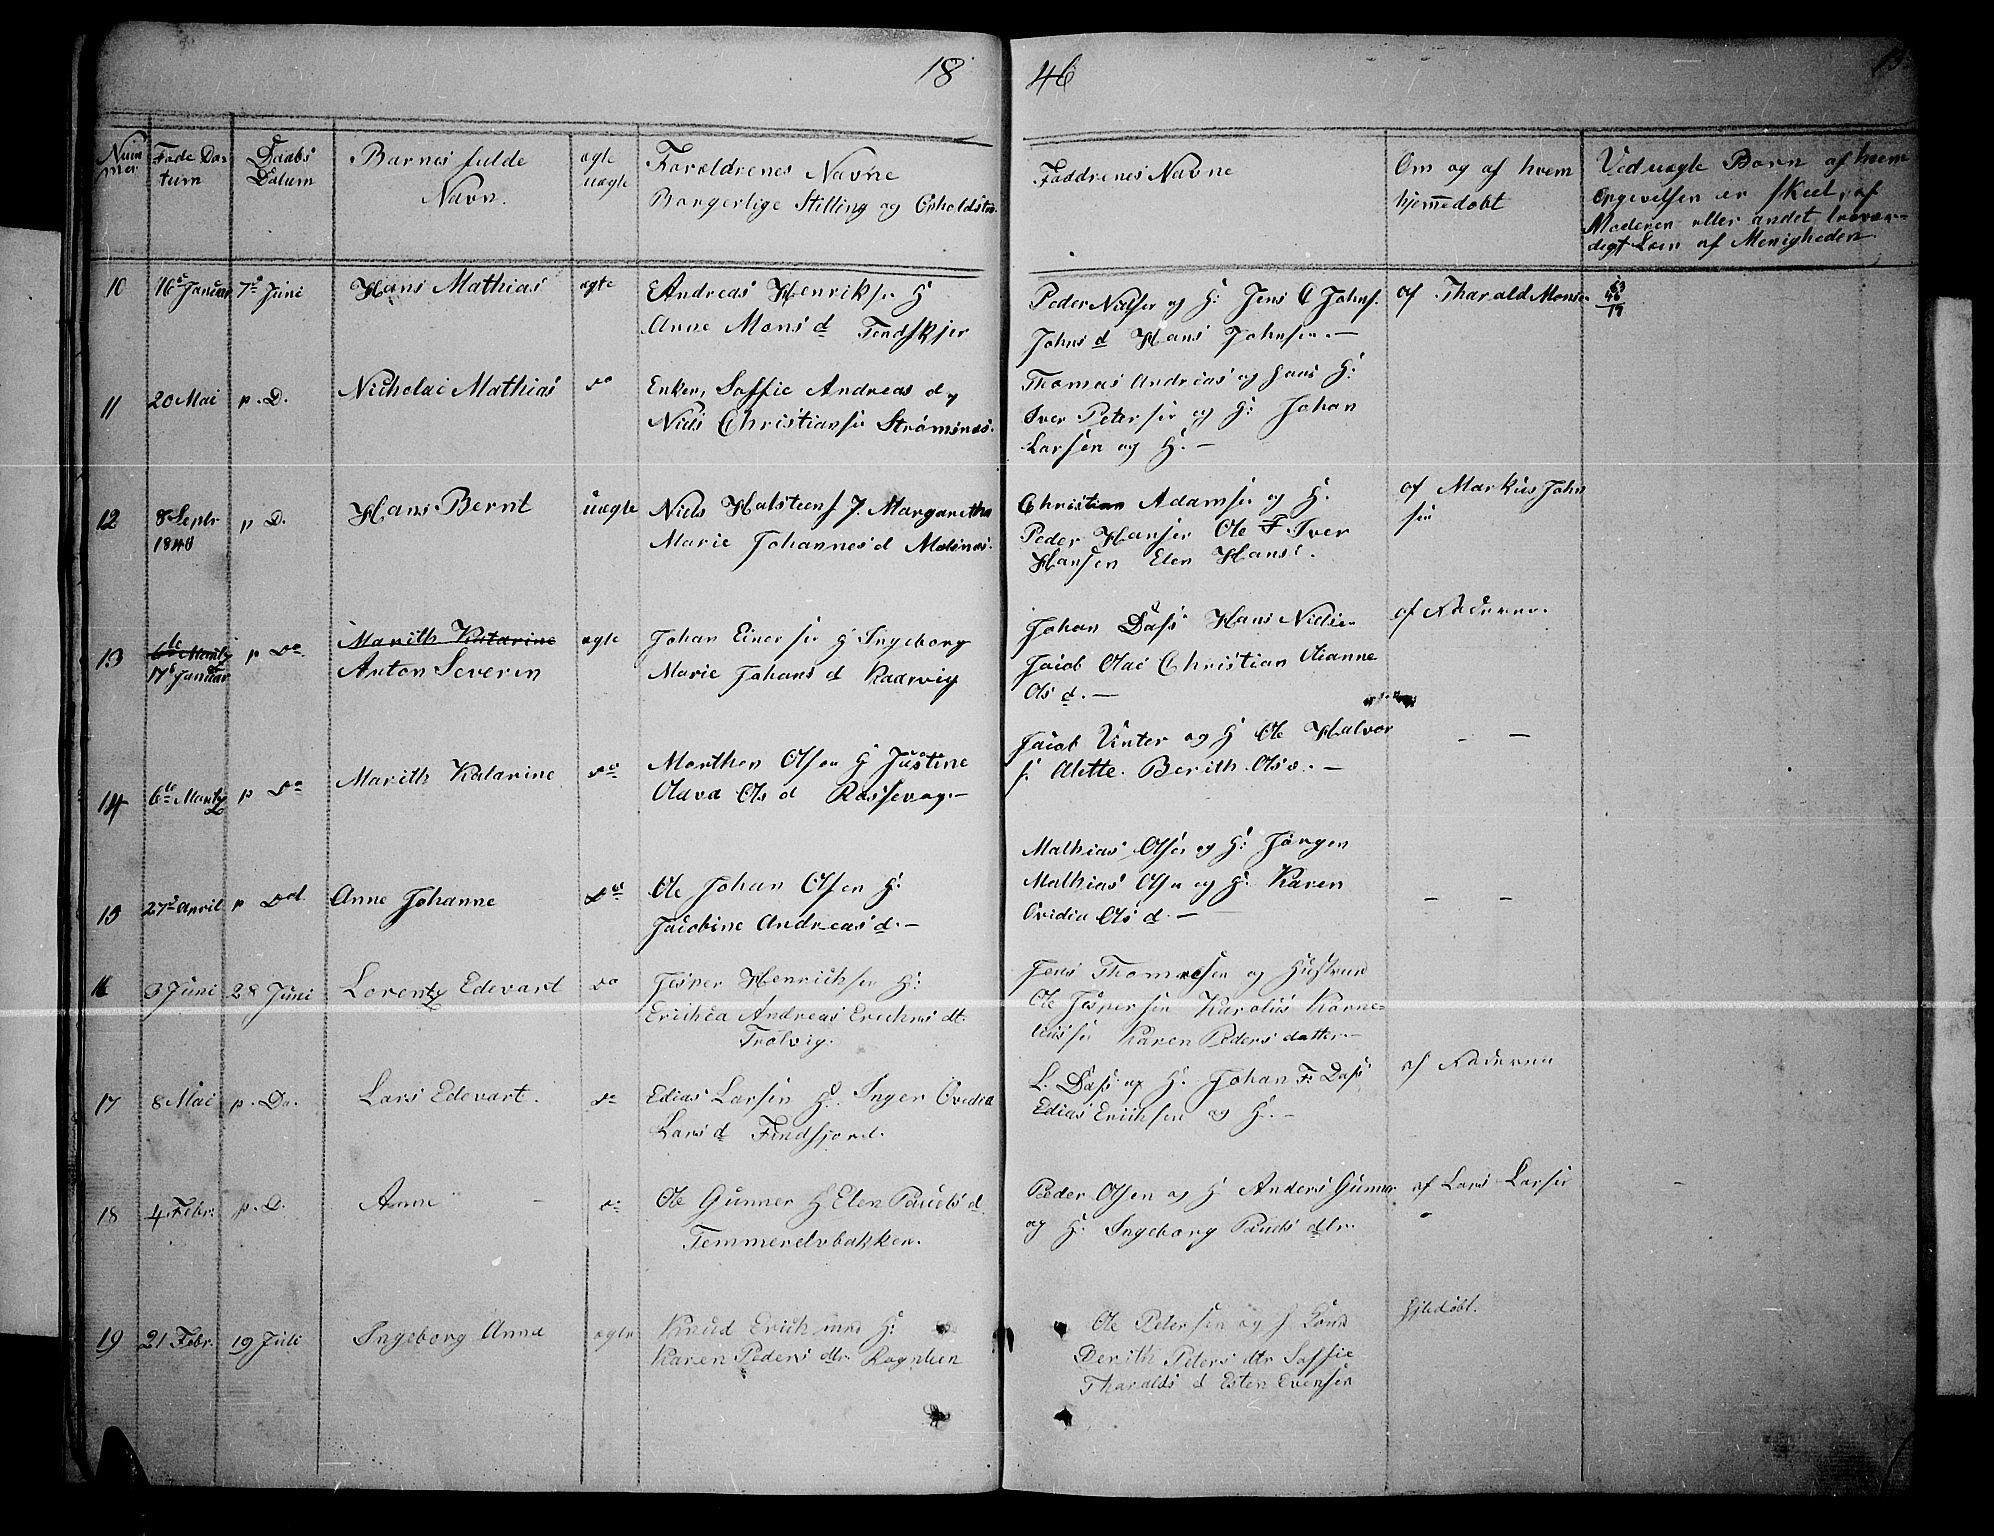 18 46
13
Nummer
Føde Datum
Daabs Datum
Barnes fulde Navn.
ægte uægte
Forældrenes Navne
Borgerlige Stilling og Opholdsted
Faddrenes Navne
Om og af hvem hjemmedøbt
Ved uægte Børn af hvem
Opgivelsen er skeet, af
Moderen eller andet troværdigt Lem af Menigheden
10 16de Januar 7de Juni Hans Mathias ægte Andreas Henriksen H
Anne Mons d. Findskjer
Peder Nielsen og H: Jens C Johns.
Johns d Hans Johnsen. —
af Tharald Monsen
63
46
17
11 20 Mai p. D. Nicholai Mathias do Enken, Soffie Andreas d og
Niels Christiansen Strømsnæs.
Thomas Andreas og Hans H:
Iver Petersen og H: Johan
Larsen og H. —
12 8 Septr 1846 p D. Hans Bernt uægte Niels Halsteens. P. Margaretha
Marie Johannes d Malsnes.
Christian Adamsen og H.
Peder Hansen Ole F Iver
Hansen Elen Hans.
af Markus Johnsen
13 6te Martz p Do. Marith Katarine ægte Johan Einersen H Ingeborg
17de Januar Anton Severin Marie Johans d Kaarvig
Johan Dass Hans Nilsen
Jacob Olai Christian Olianne
Ols d. —
af Faderen.
14 6te Martz p Do Marith Katarine do Morthen Olsen H Justine
Olava Ols d Rossevog. —
Jacob Vinter og H Ole Halvor
s. Alette. Berith Ols d. —
— —
15 27de April p Do Anne Johanne Do Ole Johan Olsen H.
Jacobine Andreas d. —
Mathias Olsen og H: Jørgen
Mathias Olsen og H: Karen
Ovidia Ols d. —
— —
16 3 Juni 28 Juni Lorentz Edevart do Jesper Henrichsen H:
Erichia Andreas Erichs dt.
Trolvig.
Jens Thomassen og Hustrue
Ole Jespersen Karolus Korneliussen
Karen Peders datter. —
17 8 Mai p. Do. Lars Edevart. do Edias Larsen H. Inger Ovidia
Lars d Findfjord.
L. Dass og H. Johan F. Dass
Edias Erichsen og H. —
af Faderen
18 4 Febr. p. D. Anne — do Ole Gunner H Elen Pauels d.
Temmerelvbakken.
Peder Olsen og H Anders Gunner
og H. Ingeborg Pauels dtr.
af Lars Larsen
19 21 Febr. 19 Juli Ingeborg Anna ægte Knud Erich H:
Karen Peders dtr. Rognlien
Ole Petersen og H
Berith Peters dtr Soffie
Tharalds d Esten Evensen
Hjmdøbt.